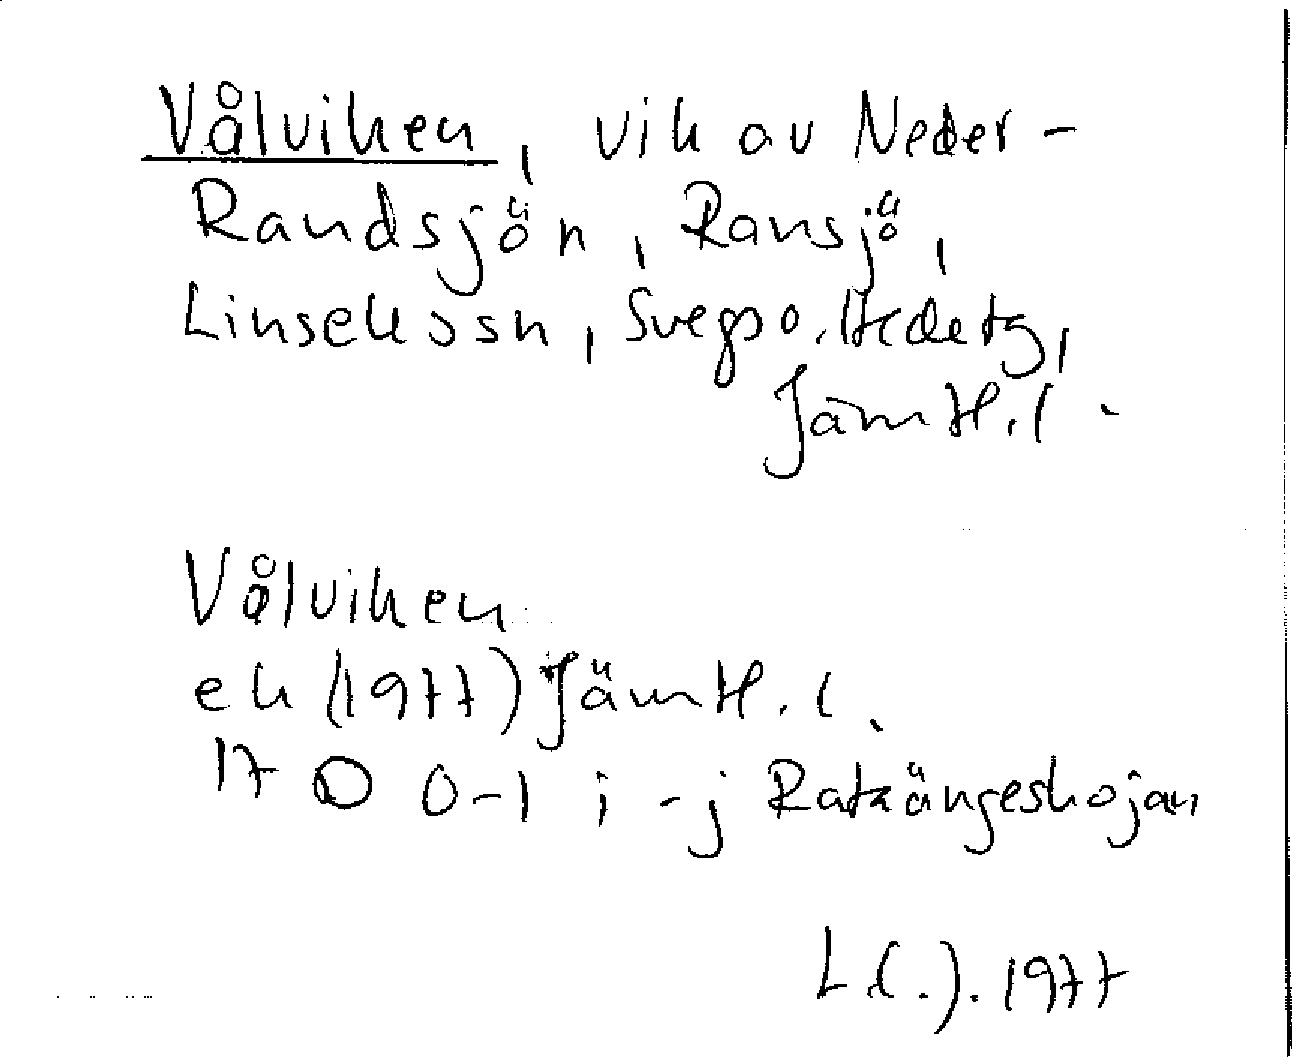 Vålviken, vik av Neder-
Randsjön, Ransjö,
Linsells sn, Svegs o. Hedes tg,
Jämtl. l.
Vålviken
ek (1977) Jämtl. l.
17 D 0-1 i-j Ratzängeskojan
1977